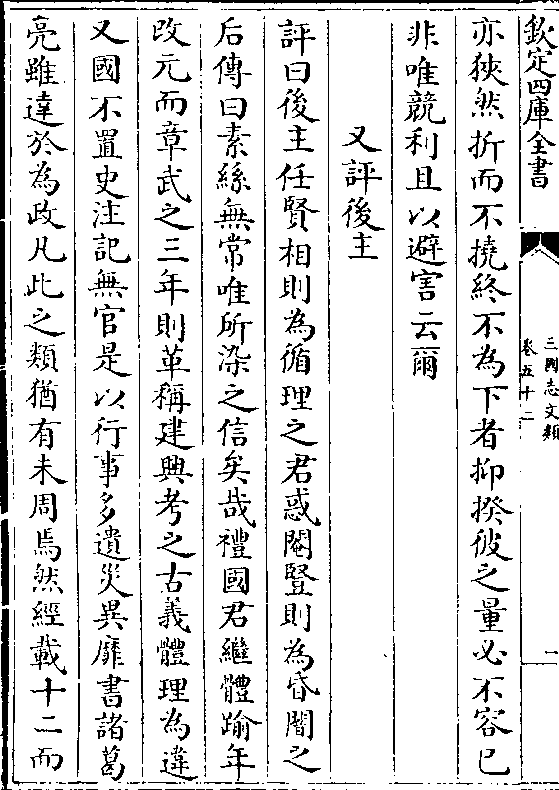 欽定四庫全書
三國志文類
卷五十二
一
亦狹然折而不撓終不為下者抑揆彼之量必不容已
非唯競利且以避害云爾
又評後主
評曰後主任賢相則為循理之君惑閹豎則為昏闇之
后傳曰素絲無常唯所染之信矣哉禮國君繼體踰年
改元而章武之三年則革稱建興考之古義體理為違
又國不置史注記無官是以行事多遺災異靡書諸葛
亮雖達於為政凡此之類猶有未周焉然經載十二而